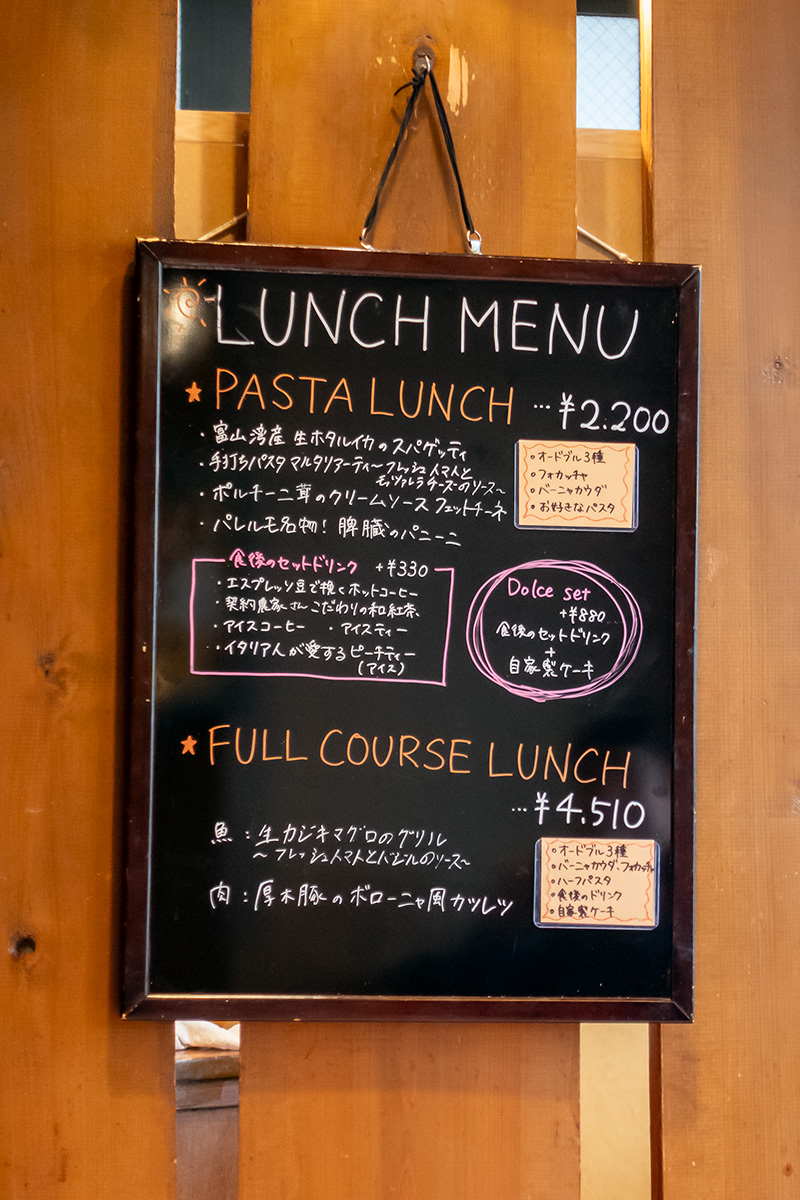 LUNCH MENU
★ PASTA LUNCH … ¥2.200
・富山湾産 生ホタルイカのスパゲッティ
・手打ちパスタ マルタリアーティ〜フレッシュトマトと
モッツァレラチーズのソース〜
・ポルチーニ茸のクリームソース フェットチーネ
・パレルモ名物! 脾臓のパニーニ
・オードブル3種
・フォカッチャ
・バーニャカウダ
・お好きなパスタ
食後のセットドリンク +¥330
・エスプレッソ豆で挽くホットコーヒー
・契約農家さんこだわりの和紅茶
・アイスコーヒー ・アイスティー
・イタリア人が愛するピーチティー
(アイス)
Dolce set
+¥880
食後のセットドリンク
+
自家製ケーキ
★ FULL COURSE LUNCH
… ¥4.510
魚:生カジキマグロのグリル
〜フレッシュトマトとバジルのソース〜
肉:厚木豚のボローニャ風カツレツ
・オードブル3種
・バーニャカウダ、フォカッチャ
・ハーフパスタ
・食後のドリンク
・自家製ケーキ